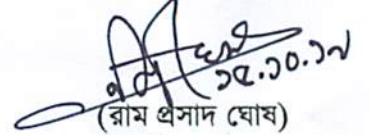 ১৫.১০.১৭
(রাম প্রসাদ ঘোষ)